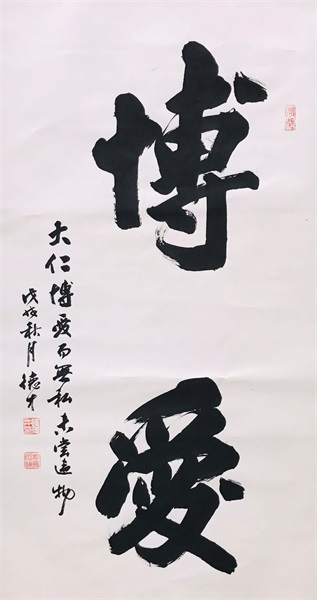 博愛
大仁博愛而無私未嘗遗物
戊戌秋月德才